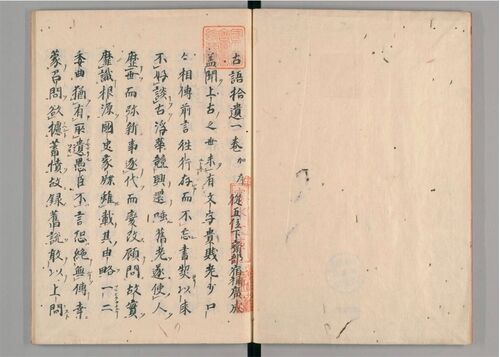 古語拾遺一巻 加序
從五位下齋部宿祢廣成
蓋聞上古之世未有文字貴賤老少口
々相傳前言往行存而不忘書契以来
不好談古浮華競興還嗤舊老遂使人
歴世而弥新事逐代而變改顧問故實
靡識根源國史家牒雖載其由略一二
委曲猶有所遺愚臣不言恐絶無傳幸
蒙召問欲攄蓄憤故録舊説敢以上聞